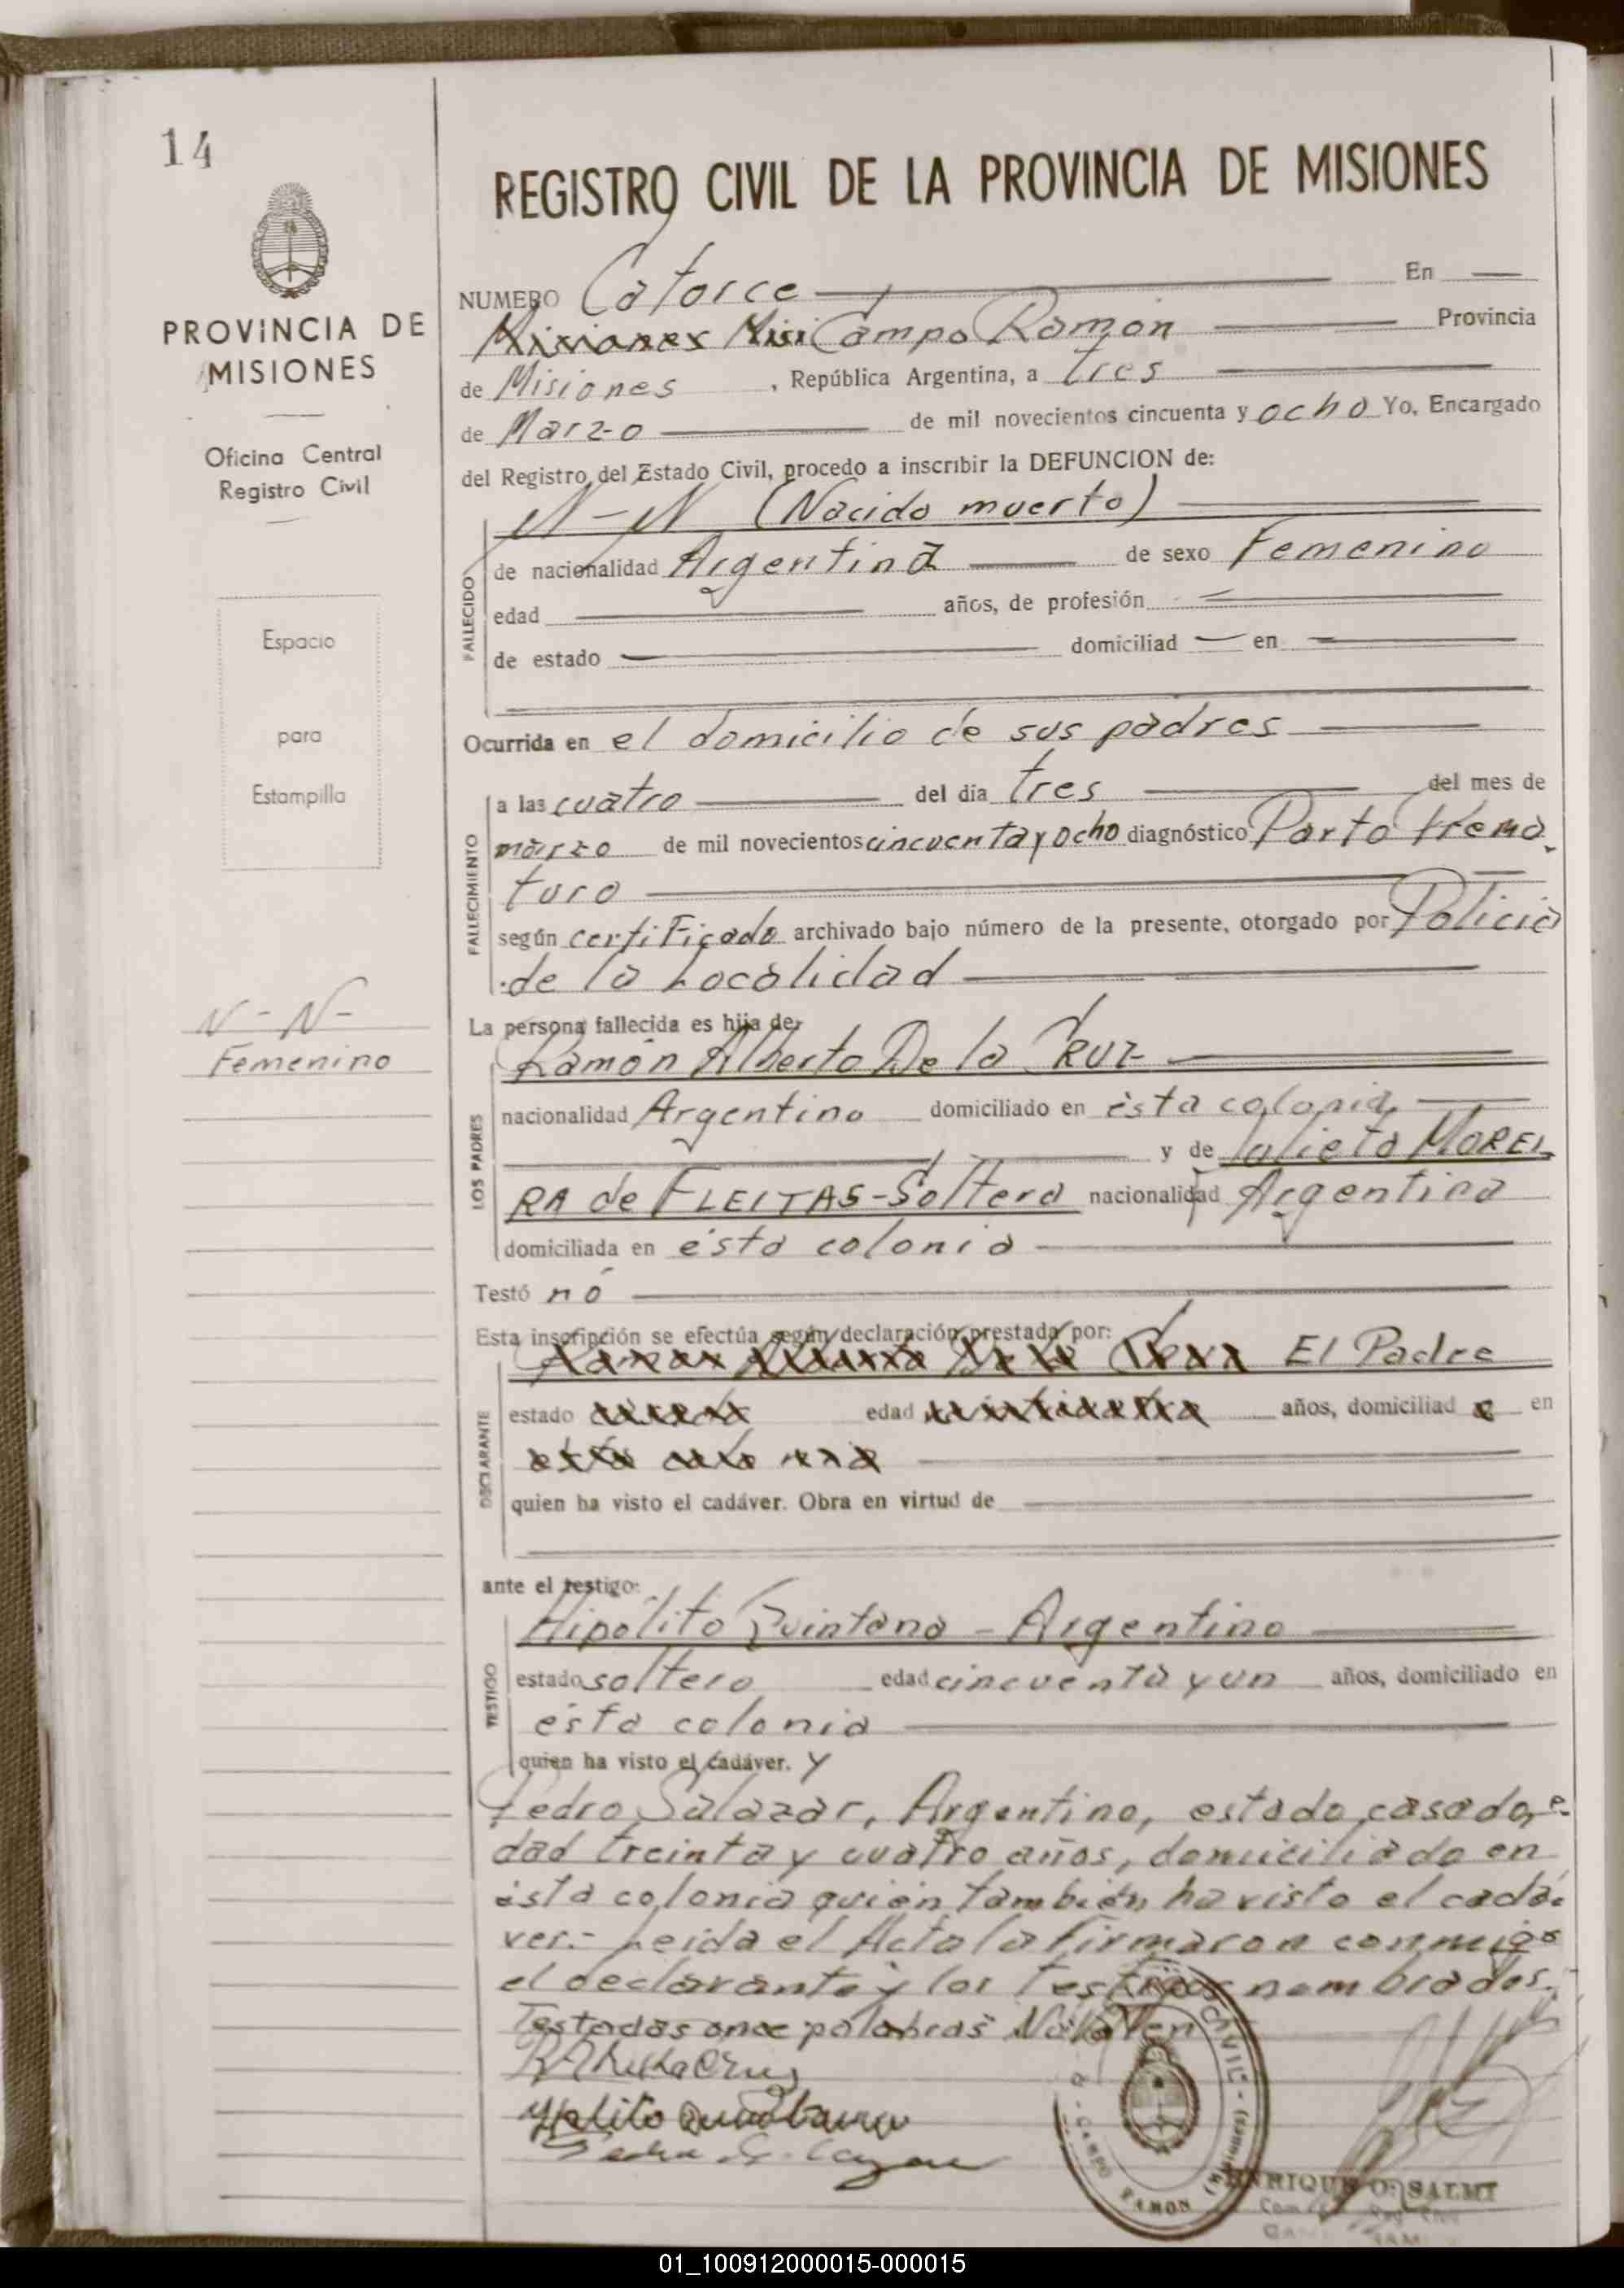 14
REGISTRO CIVIL DE LA PROVINCIA DE MISIONES
PROVINCIA DE
MISIONES
Oficina Central
Registro Civil
Espacio
para
Estampilla
N-N-
Femenino
NUMERO Catorce En
Misiones Misi Campo Ramón Provincia
de Misiones, República Argentina, a tres
de Marzo de mil novecientos cincuenta y ocho Yo, Encargado
del Registro del Estado Civil, procedo a inscribir la DEFUNCION de:
FALLECIDO
N-N (Nacido muerto)
de nacionalidad Argentina de sexo Femenino
edad años, de profesión
de estado domiciliad en
Ocurrida en el domicilio de sus padres
FALLECIMIENTO
a las cuatro del día tres del mes de
marzo de mil novecientos cincuenta y ocho diagnóstico Parto Prema-
turo
según certificado archivado bajo número de la presente, otorgado por Policia
de la Localidad
La persona fallecida es hija de:
LOS PADRES
Ramón Alberto De la CRUZ
nacionalidad Argentino domiciliado en ésta colonia
y de Julieta MOREI
RA de FLEITAS-Soltera nacionalidad Argentina
domiciliada en ésta colonia
Testó nó
Esta inscripción se efectúa según declaración prestada por:
DECLARANTE
Ramón Alberto De la Cruz El Padre
estado edad años, domiciliad o en
esta colonia
quien ha visto el cadáver. Obra en virtud de
ante el testigo:
TESTIGO
Hipólito Quintana - Argentino
estado soltero edad cincuenta y un años, domiciliado en
ésta colonia
quien ha visto el cadáver. Y
Pedro Salazar, Argentino, estado casado, e-
dad treinta y cuatro años, domiciliado en
ésta colonia quién también ha visto el cadá-
ver.- Leida el Acta la firmaron conmigo
el declarante y los testigos nombrados.
Testadas once palabras No Valen
CIVIL - (Misiones)
CAMPO RAMON
ENRIQUE O. SALMI
01_100912000015-000015